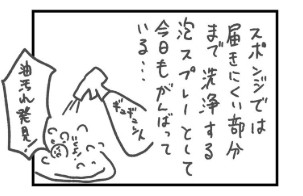 スポンジでは
届きにくい部分
まで洗浄する
泡スプレーとして
今日もがんばって
いる…
ギュギュン
油汚れ発見!